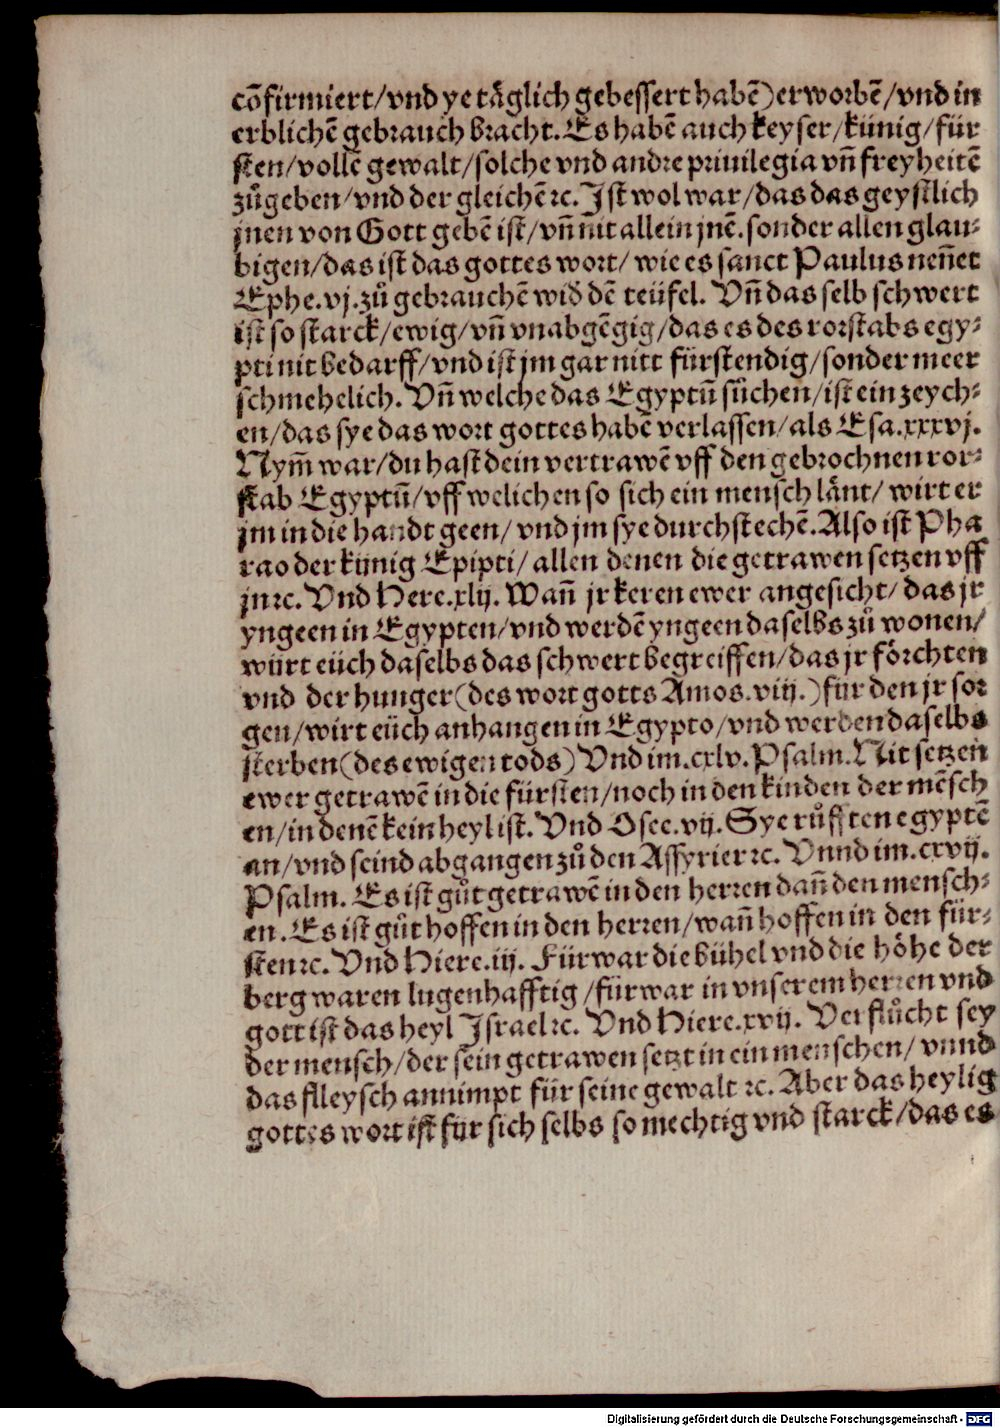 cõfirmiert/vnd ye täglich gebessert habẽ) erworbẽ/vnd in
erblichẽ gebrauch bracht. Es habẽ auch keyser/künig/für
sten/vollẽ gewalt/solche vnd andre priuilegia vñ freyheitẽ
zůgeben/vnd der gleichẽ ꝛc. Ist wol war/das das geystlich
jnen von Gott gebẽ ist/vñ nit allein jnẽ. sonder allen glau⸗
bigen/das ist das gottes wort/ wie es sanct Paulus neñet
Ephe.vj. zů gebrauchẽ wið dẽ teüfel. Vñ das selb schwert
ist so starck/ewig/vñ vnabgẽgig/das es des rorstabs egy⸗
pti nit bedarff/vnd ist jm gar nitt fürstendig/sonder meer
schmehelich. Vñ welche das Egyptũ sůchen/ist ein zeych⸗
en/das sye das wort gottes habẽ verlassen/als Esa.xxxvj.
Nym̃ war/du hast dein vertrawẽ vff den gebrochnen ror⸗
stab Egyptũ/vff welichen so sich ein mensch länt/ wirt er
jm in die handt geen/ vnd jm sye durchstechẽ. Also ist Pha
rao der künig Epipti/ allen denen die getrawen setzen vff
jn ꝛc. Vnd Here.xlij. Wañ jr keren ewer angesicht/ das jr
yngeen in Egypten/vnd werdẽ yngeen daselbs zů wonen/
würt eüch daselbs das schwert begreiffen/das jr förchten
vnd der hunger (des wort gotts Amos.viij.) für den jr sor
gen/wirt eüch anhangen in Egypto/vnd werden daselbs
sterben (des ewigen tods) Vnd im.cxlv. Psalm. Nit setzen
ewer getrawẽ in die fürsten/noch in den kinden der mẽsch
en/in denẽ kein heyl ist. Vnd Osee.vij. Sye růfften egyptẽ
an/vnd seind abgangen zů den Assyrier ꝛc. Vnnd im.cxvij.
Psalm. Es ist gůt getrawẽ in den herren dañ den mensch⸗
en. Es ist gůt hoffen in den herren/wañ hoffen in den für⸗
sten ꝛc. Vnd Hiere.iij. Fürwar die bühel vnd die höhe der
berg waren lugenhafftig/fürwar in vnserem herren vnd
gott ist das heyl Israel ꝛc. Vnd Hiere.xvij. Verflůcht sey
der mensch/der sein getrawen setzt in ein menschen/ vnnd
das fleysch annimpt für seine gewalt ꝛc. Aber das heylig
gottes wort ist für sich selbs so mechtig vnd starck/das es
Digitalisierung gefördert durch die Deutsche Forschungsgemeinschaft - DFG